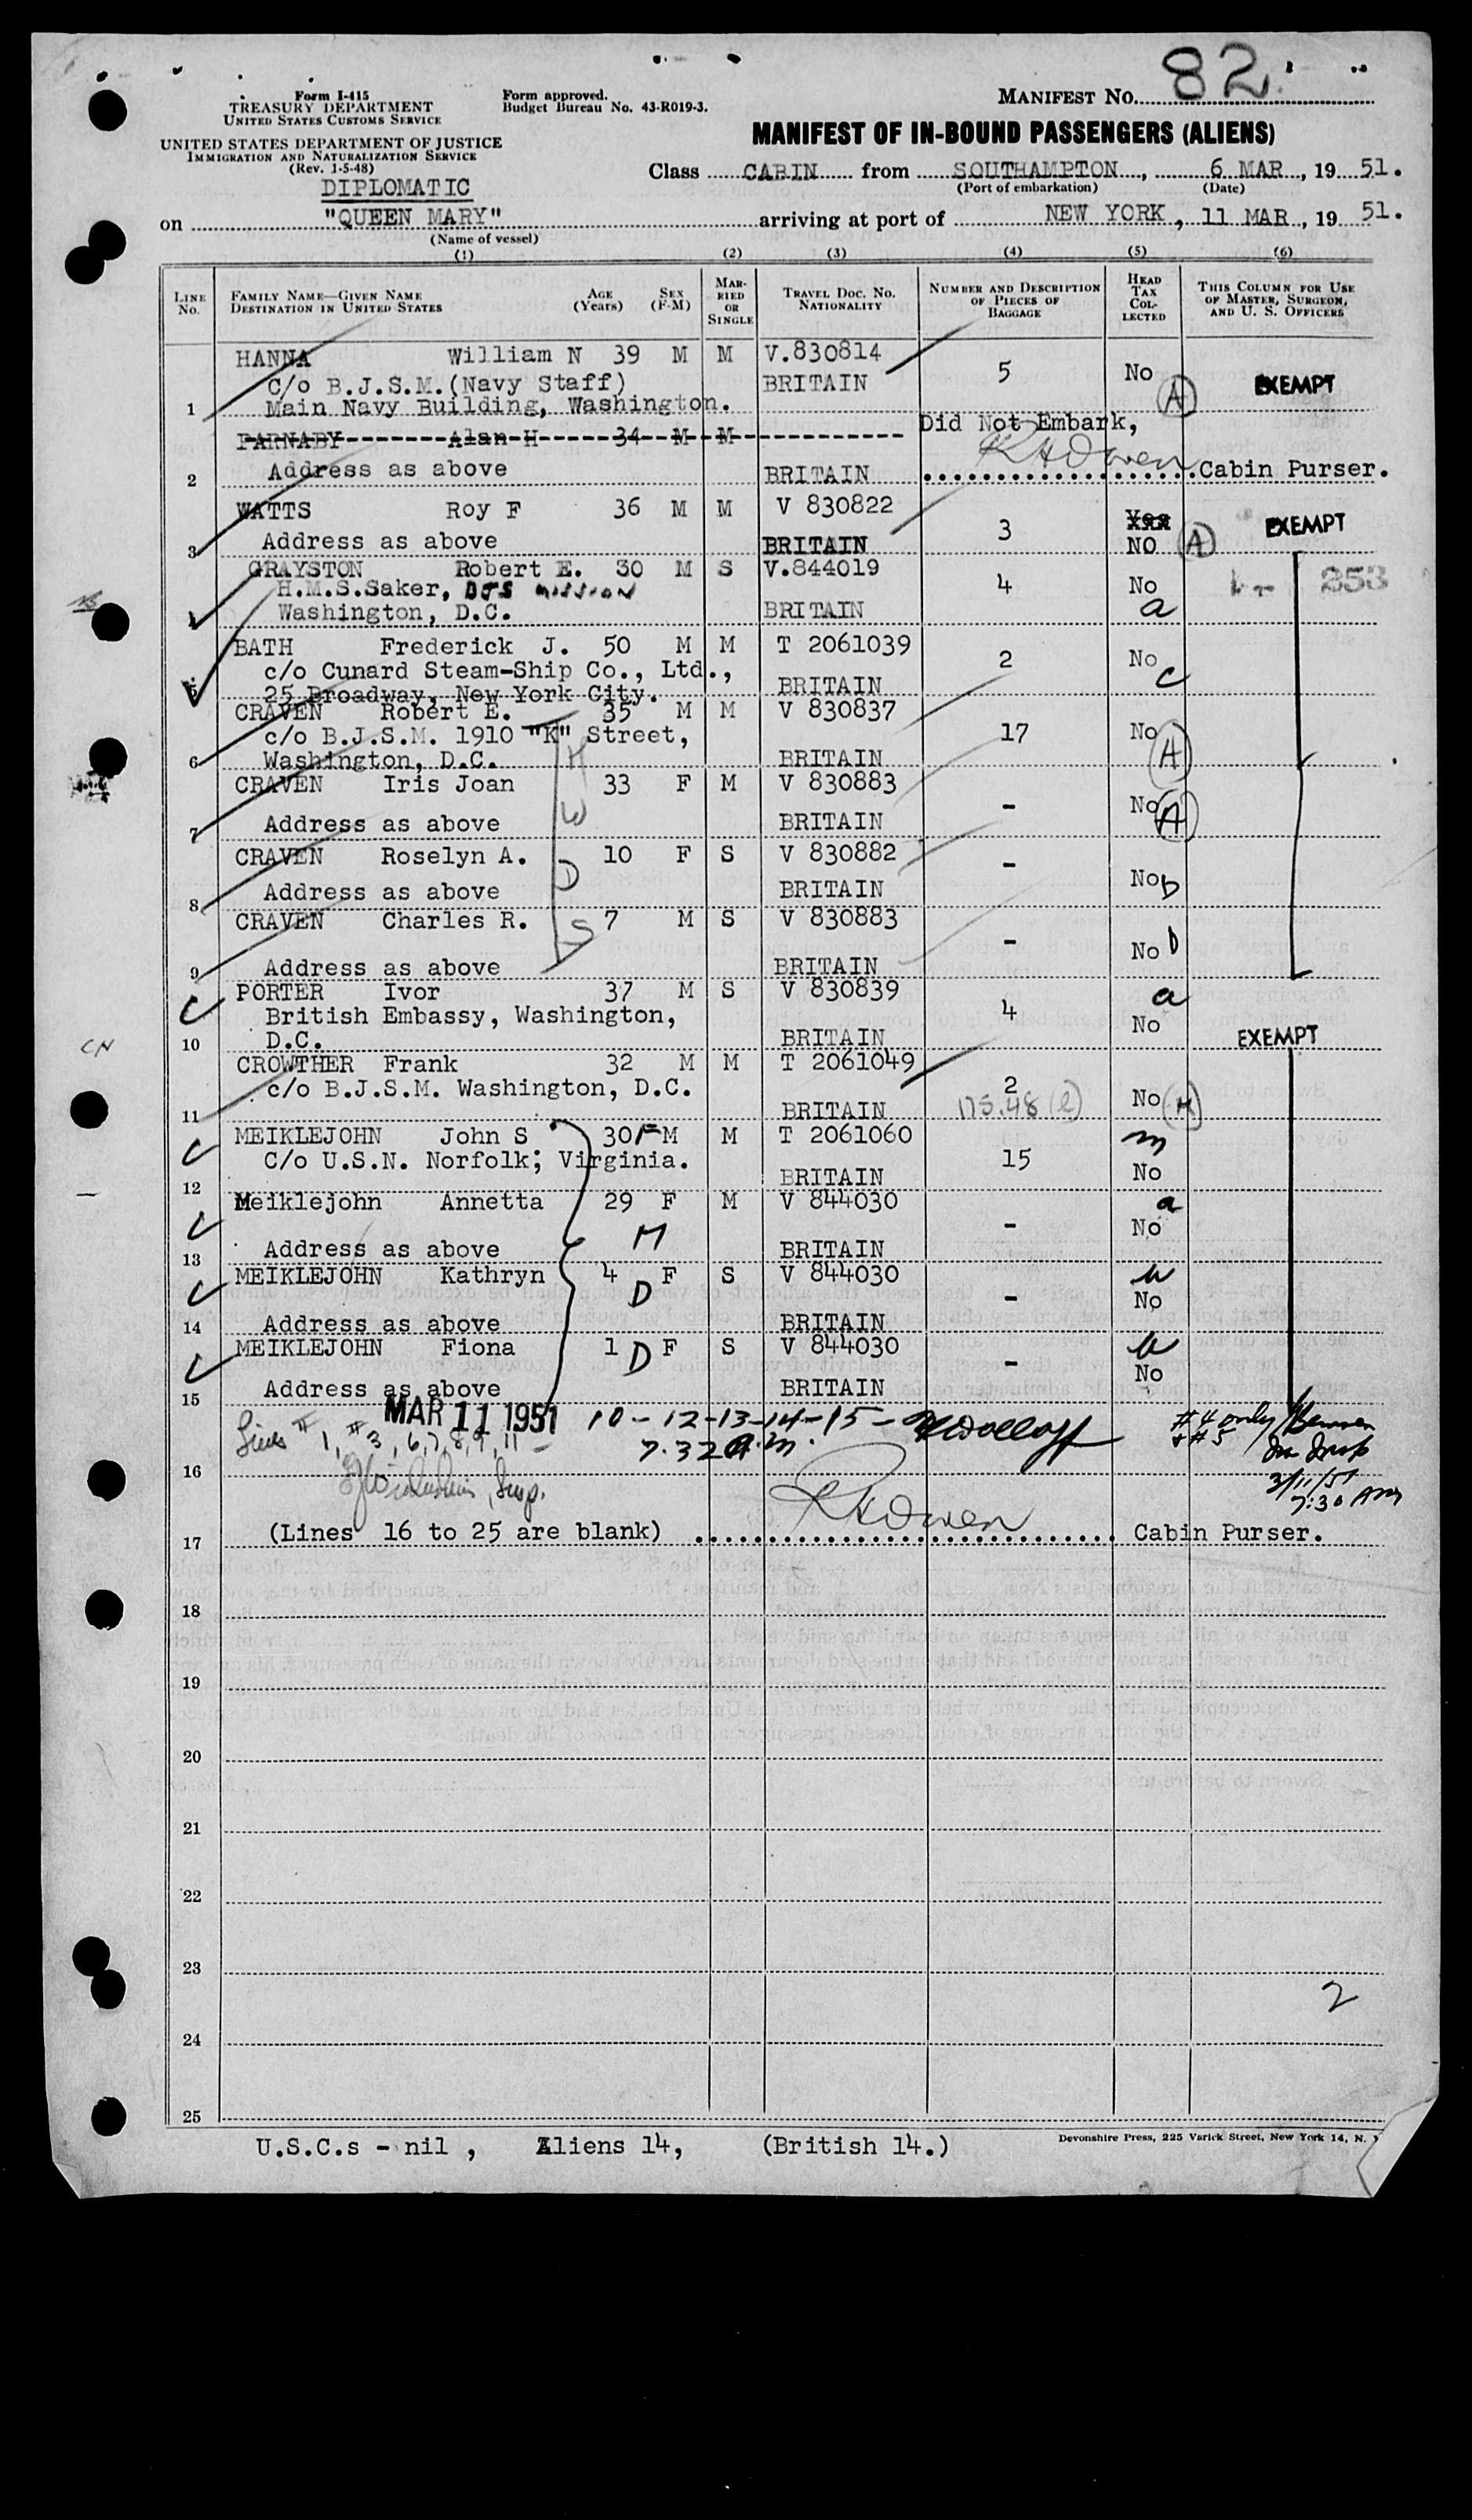 82
Form I-415
TREASURY DEPARTMENT
UNITED STATES CUSTOMS SERVICE
Form approved.
Budget Bureau No. 43-R019-3.
MANIFEST No.
UNITED STATES DEPARTMENT OF JUSTICE
IMMIGRATION AND NATURALIZATION SERVICE
(Rev. 1-5-48)
MANIFEST OF IN-BOUND PASSENGERS (ALIENS)
DIPLOMATIC
Class CABIN from SOUTHAMPTON, 6 MAR, 19 51.
(Port of embarkation) (Date)
on "QUEEN MARY" arriving at port of NEW YORK, 11 MAR, 19 51.
(Name of vessel)
(1) (2) (3) (4) (5) (6)
LINE No. FAMILY NAME—GIVEN NAME DESTINATION IN UNITED STATES AGE (Years) SEX (F-M) MARRIED OR SINGLE TRAVEL DOC. NO. NATIONALITY NUMBER AND DESCRIPTION OF PIECES OF BAGGAGE HEAD TAX COLLECTED THIS COLUMN FOR USE OF MASTER, SURGEON, AND U. S. OFFICERS
HANNA William N 39 M M V.830814
C/o B.J.S.M.(Navy Staff) BRITAIN 5 No (A) EXEMPT
1 Main Navy Building, Washington.
PARNABY Alan H 34 M M Did Not Embark,
2 Address as above BRITAIN RHOwen Cabin Purser.
WATTS Roy F 36 M M V 830822 3 Yes EXEMPT
3 Address as above BRITAIN NO (A)
GRAYSTON Robert E. 30 M S V.844019 4 No 253
H.M.S.Saker, BJS MISSION a
4 Washington, D.C. BRITAIN
BATH Frederick J. 50 M M T 2061039 2 No
c/o Cunard Steam-Ship Co., Ltd., c
5 25 Broadway, New York City. BRITAIN
CRAVEN Robert E. 35 M M V 830837
c/o B.J.S.M. 1910 "K" Street, H 17 No (A)
6 Washington, D.C. BRITAIN
CRAVEN Iris Joan 33 F M V 830883 - No (A)
W
7 Address as above BRITAIN
CRAVEN Roselyn A. 10 F S V 830882 -
D
8 Address as above BRITAIN No b
CRAVEN Charles R. 7 M S V 830883
S
9 Address as above BRITAIN - No b
PORTER Ivor 37 M S V 830839 a
British Embassy, Washington, 4 No
CN
10 D.C. BRITAIN EXEMPT
CROWTHER Frank 32 M M T 2061049
c/o B.J.S.M. Washington, D.C. 2
11 BRITAIN 175.48 (2) No
MEIKLEJOHN John S 30 F M M T 2061060 m
C/o U.S.N. Norfolk; Virginia. 15 No
12 BRITAIN
Meiklejohn Annetta 29 F M V 844030 a
- No
13 Address as above M BRITAIN
MEIKLEJOHN Kathryn 4 F S V 844030
D - No
14 Address as above BRITAIN
MEIKLEJOHN Fiona 1 F S V 844030
D - No
15 Address as above BRITAIN
MAR 11 1951
Lines # 1, #3, 6,7,8,9,11 -
10-12-13-14-15-
7.32 A.M.
#4 only
& #5
3/11/51
7:30 AM
16 Insp.
RHOwen
17 (Lines 16 to 25 are blank) Cabin Purser.
18
19
20
21
22
23
2
24
25
U.S.C.s - nil , Aliens 14, (British 14.)
Devonshire Press, 225 Varick Street, New York 14, N.